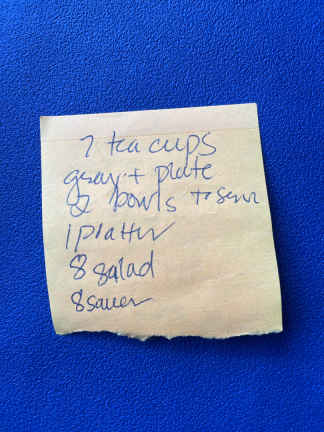 7 tea cups
gravy + plate
2 bowls to serve
1 platter
8 salad
8 saucer